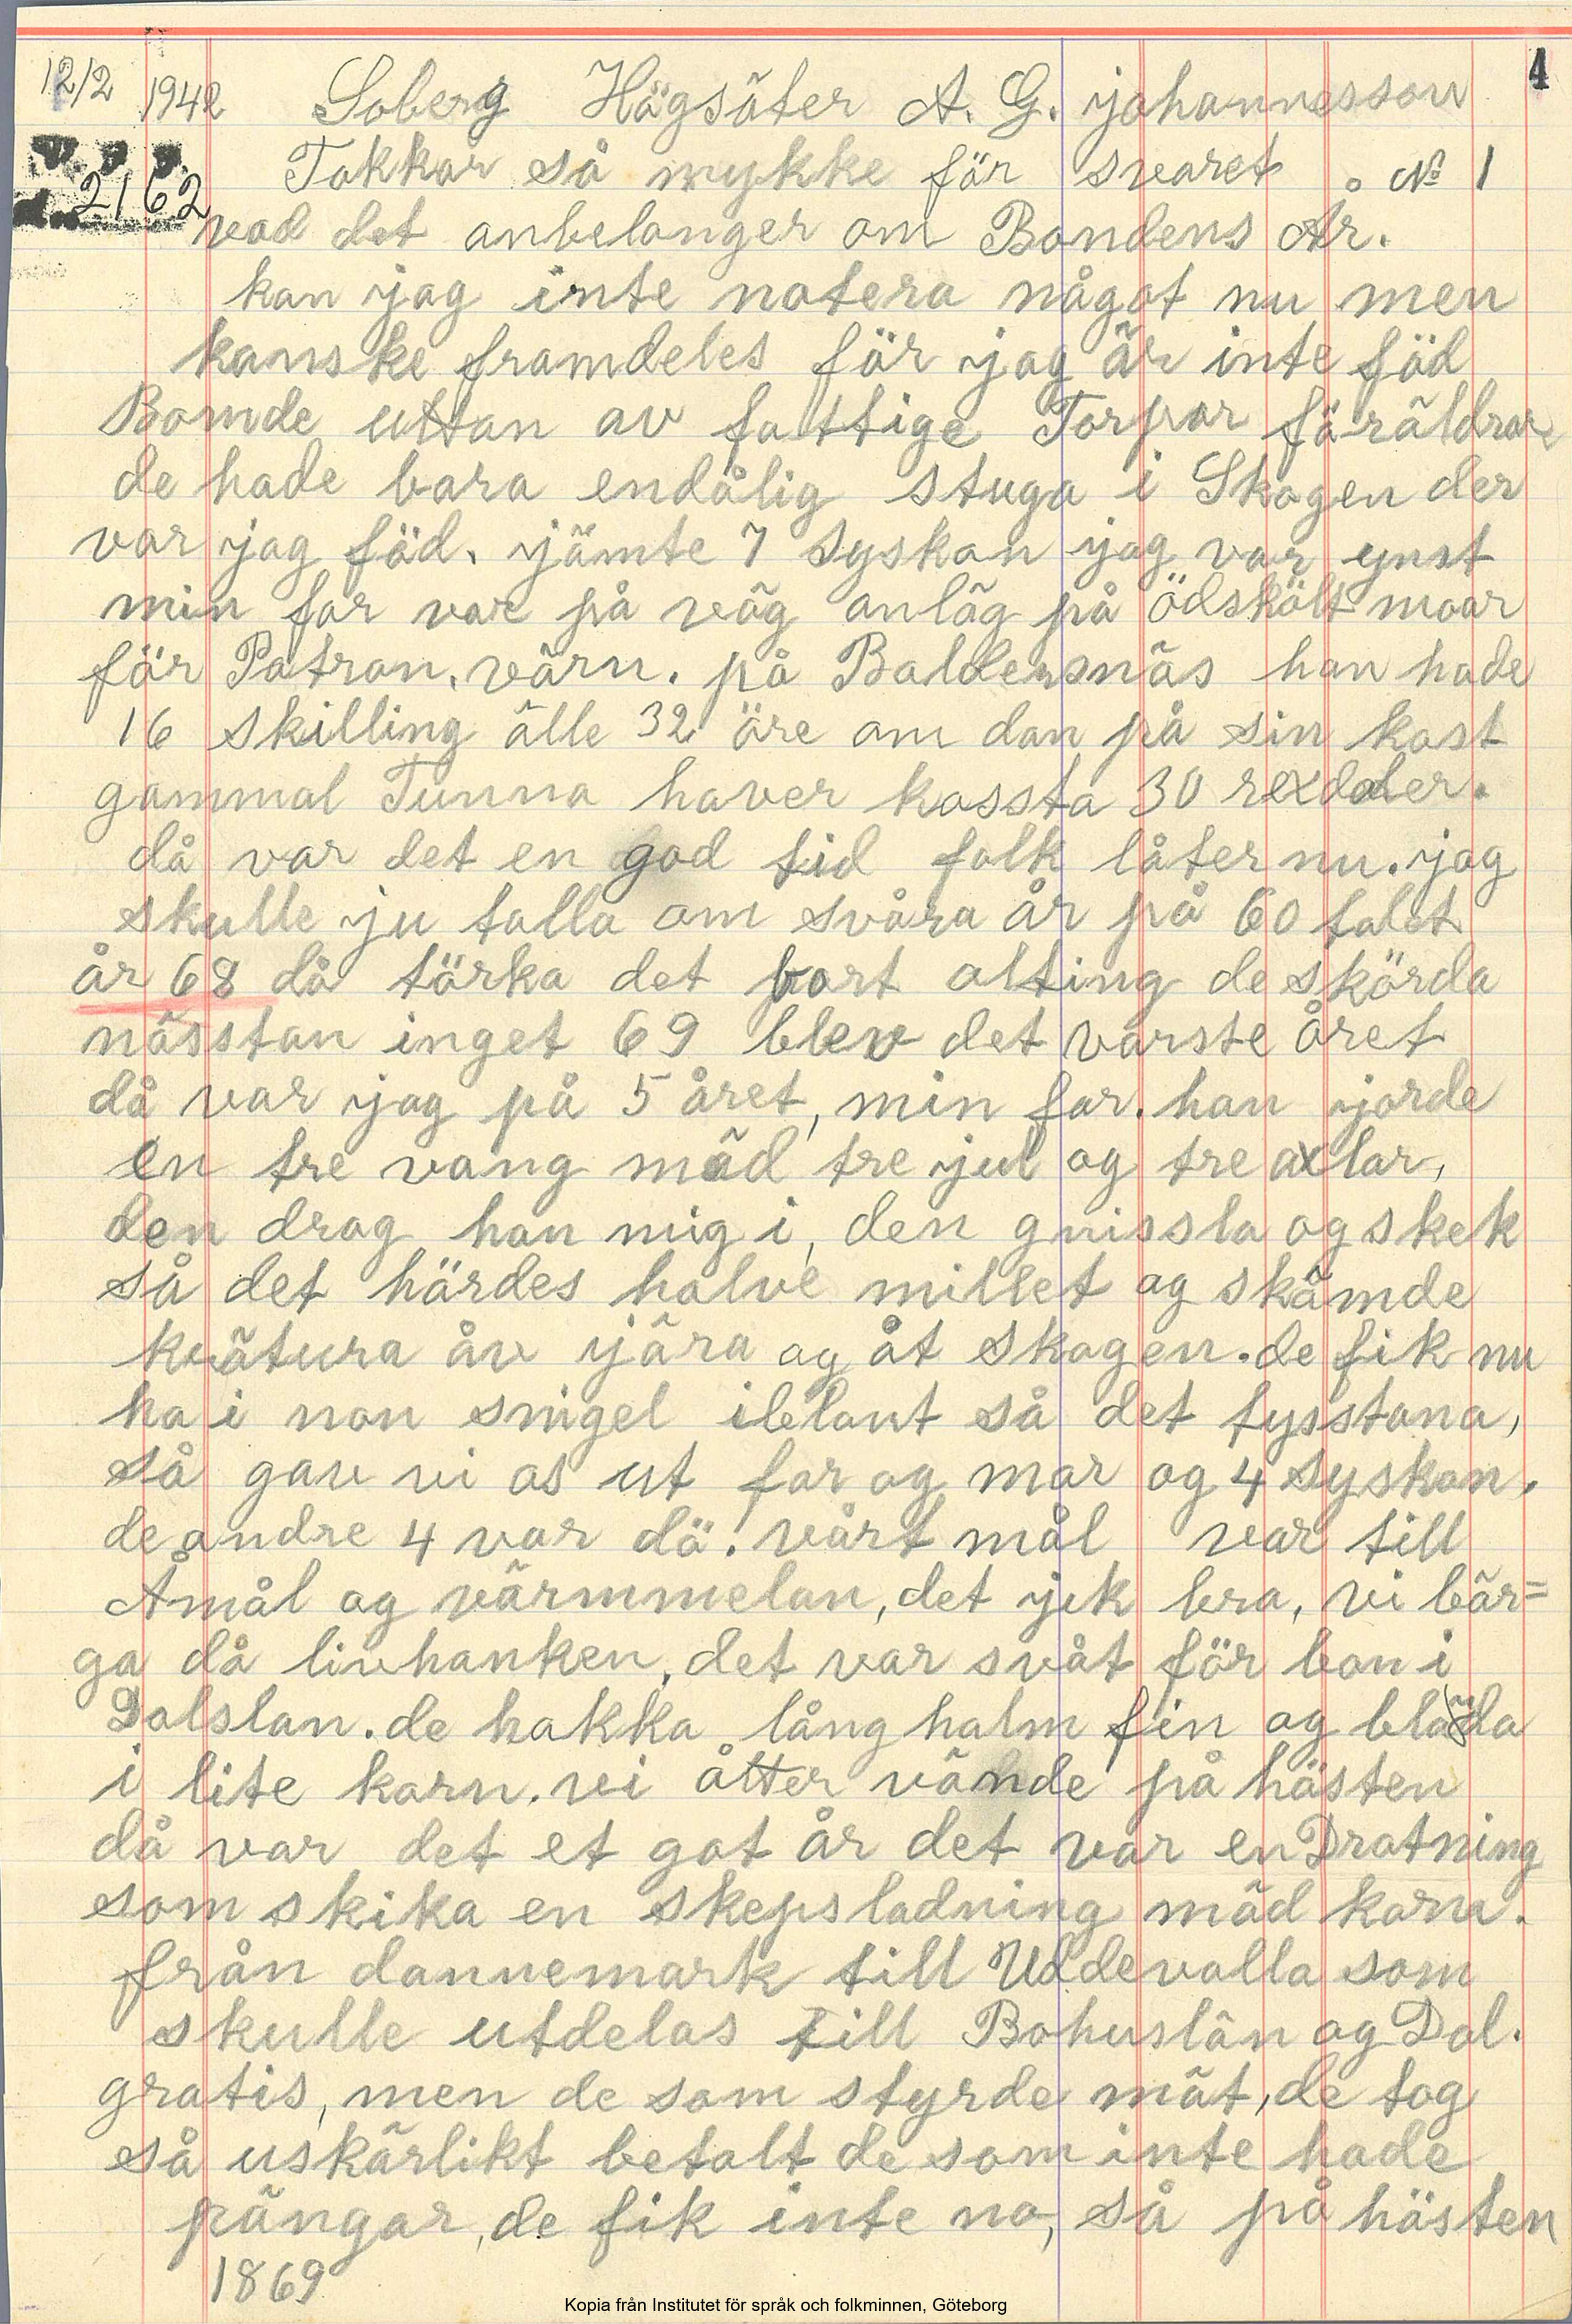 4
12/2 1942 Soberg Högsäter A. G. johannesson
Takkar så mykke för svaret. № 1
2162
vad det anbelanger om Bondens År.
kan jag inte notera något nu men
kanske framdeles för jag är inte föd
Bomde uttan av fattige Torpar föräldrar
de hade bara endålig stuga i Skogen der
var jag föd. jämte 7 syskon jag var ynst
min far var på väg anläg på ödskölt moar
för Patron. värn. på Baldersnäs han hade
16 skilling älle 32 öre om dan på sin kost
gammal Tunna haver kossta 30 rexdaler.
då var det en god tid folk låter nu. jag
skulle ju talla om svåra år på 60 talet
år 68 då törka det bort alting de skörda
nässtan inget 69 blev det varste året
då var jag på 5 året, min far. han jorde
en tre vang mäd tre jul og tre axlar,
den drog han mig i, den gnissla og skek
så det hördes halve millet og skämde
kvätura åv jära og åt skogen. de fik nu
ha i non snigel iblant så det tysstana,
så gav vi os ut far og mor og 4 syskon.
de andre 4 var dä. vårt mål var till
Åmål og värmmelan, det jek bra, vi bär=
ga då livhanken, det var svåt för bon i
Dalslan. de hakka lång halm fin og blanda
i lite korn. vi åtter vände på hästen
då var det et got år det var en Dratning
som skika en skepsladning mäd korn.
från dannemark till Uddevalla som
skulle utdelas till Bohuslän og Dal.
gratis, men de som styrde mät, de tog
så uskärlikt betalt de som inte hade
pängar, de fik inte no, så på hösten
1869
Kopia från Institutet för språk och folkminnen, Göteborg